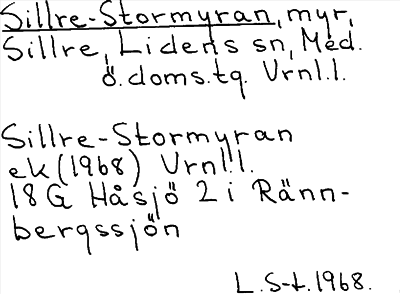 Sillre-Stormyran, myr,
Sillre, Lidens sn, Med.
ö.doms.tg. Vrnl.l.
Sillre-Stormyran
ek(1968) Vrnl.l.
18G Håsjö 2 i Ränn-
bergssjön
L.S-t.1968.